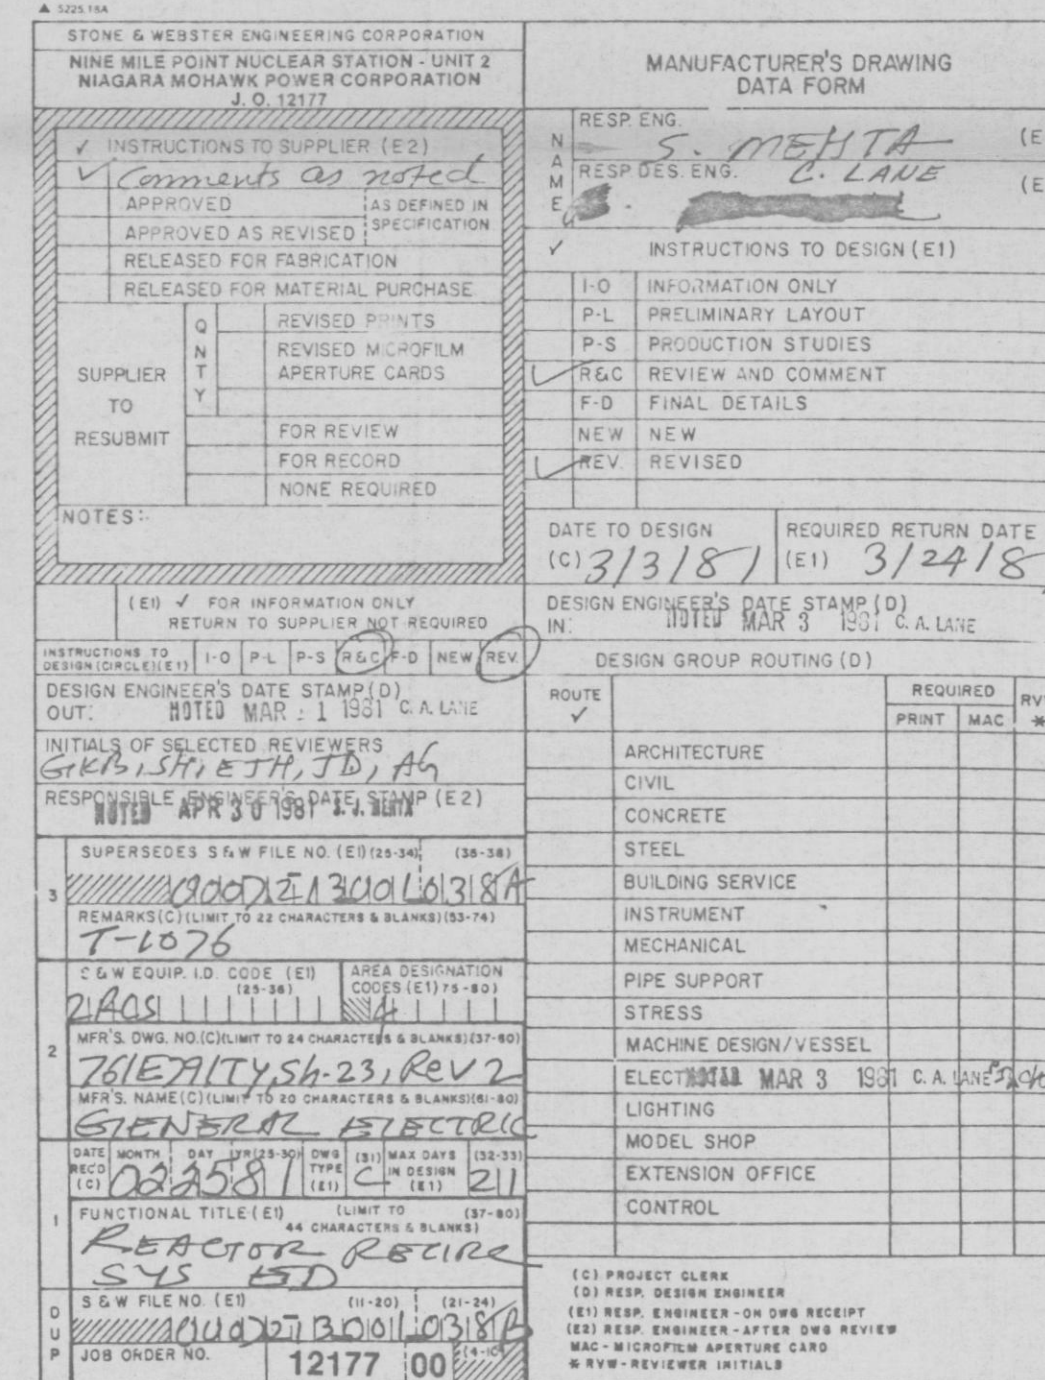 5225.18A
STONE & WEBSTER ENGINEERING CORPORATION
NINE MILE POINT NUCLEAR STATION - UNIT 2
NIAGARA MOHAWK POWER CORPORATION
J. O. 12177
✓ INSTRUCTIONS TO SUPPLIER (E2)
✓ Comments as noted
APPROVED
APPROVED AS REVISED
AS DEFINED IN
SPECIFICATION
RELEASED FOR FABRICATION
RELEASED FOR MATERIAL PURCHASE
SUPPLIER
TO
RESUBMIT
QNTY
REVISED PRINTS
REVISED MICROFILM
APERTURE CARDS
FOR REVIEW
FOR RECORD
NONE REQUIRED
NOTES:
(E1) ✓ FOR INFORMATION ONLY
RETURN TO SUPPLIER NOT REQUIRED
INSTRUCTIONS TO
DESIGN (CIRCLE)(E1)
I-O P-L P-S R&C F-D NEW REV.
DESIGN ENGINEER'S DATE STAMP (D)
OUT: NOTED MAR 1 1981 C. A. LANE
INITIALS OF SELECTED REVIEWERS
GKB, SH, EJH, JD, AG
RESPONSIBLE ENGINEER'S DATE STAMP (E2)
NOTED APR 30 1981 S. J. MEHTA
3
SUPERSEDES S&W FILE NO. (E1) (25-34) (35-38)
REMARKS (C) (LIMIT TO 22 CHARACTERS & BLANKS) (53-74)
T-1076
2
S & W EQUIP. I.D. CODE (E1)
(25-36)
AREA DESIGNATION
CODES (E1) 75-80)
2ACS 4
MFR'S. DWG. NO. (C) (LIMIT TO 24 CHARACTERS & BLANKS) (37-60)
761E791TY, Sh-23, Rev 2
MFR'S. NAME (C) (LIMIT TO 20 CHARACTERS & BLANKS) (61-80)
GENERAL ELECTRIC
1
DATE
REC'D
(C)
MONTH DAY YR (25-30)
022581
DWG
TYPE
(E1)
(31)
C
MAX DAYS
IN DESIGN
(E1)
(32-33)
21
FUNCTIONAL TITLE (E1) (LIMIT TO (37-80)
44 CHARACTERS & BLANKS)
REACTOR RECIRC
SYS ED
DUP
S & W FILE NO. (E1) (11-20) (21-24)
JOB ORDER NO. 12177 00 (4-10)
MANUFACTURER'S DRAWING
DATA FORM
NAME
RESP. ENG.
S. MEHTA (E
RESP DES. ENG. C. LANE (E
✓ INSTRUCTIONS TO DESIGN (E1)
I-O INFORMATION ONLY
P-L PRELIMINARY LAYOUT
P-S PRODUCTION STUDIES
✓ R&C REVIEW AND COMMENT
F-D FINAL DETAILS
NEW NEW
✓ REV. REVISED
DATE TO DESIGN
(C) 3/3/81
REQUIRED RETURN DATE
(E1) 3/24/8
DESIGN ENGINEER'S DATE STAMP (D)
IN: NOTED MAR 3 1981 C. A. LANE
DESIGN GROUP ROUTING (D)
ROUTE
✓
REQUIRED
PRINT MAC
RV
*
ARCHITECTURE
CIVIL
CONCRETE
STEEL
BUILDING SERVICE
INSTRUMENT
MECHANICAL
PIPE SUPPORT
STRESS
MACHINE DESIGN/VESSEL
ELECT NOTED MAR 3 1981 C. A. LANE
LIGHTING
MODEL SHOP
EXTENSION OFFICE
CONTROL
(C) PROJECT CLERK
(D) RESP. DESIGN ENGINEER
(E1) RESP. ENGINEER - ON DWG RECEIPT
(E2) RESP. ENGINEER - AFTER DWG REVIEW
MAC - MICROFILM APERTURE CARD
* RVW - REVIEWER INITIALS